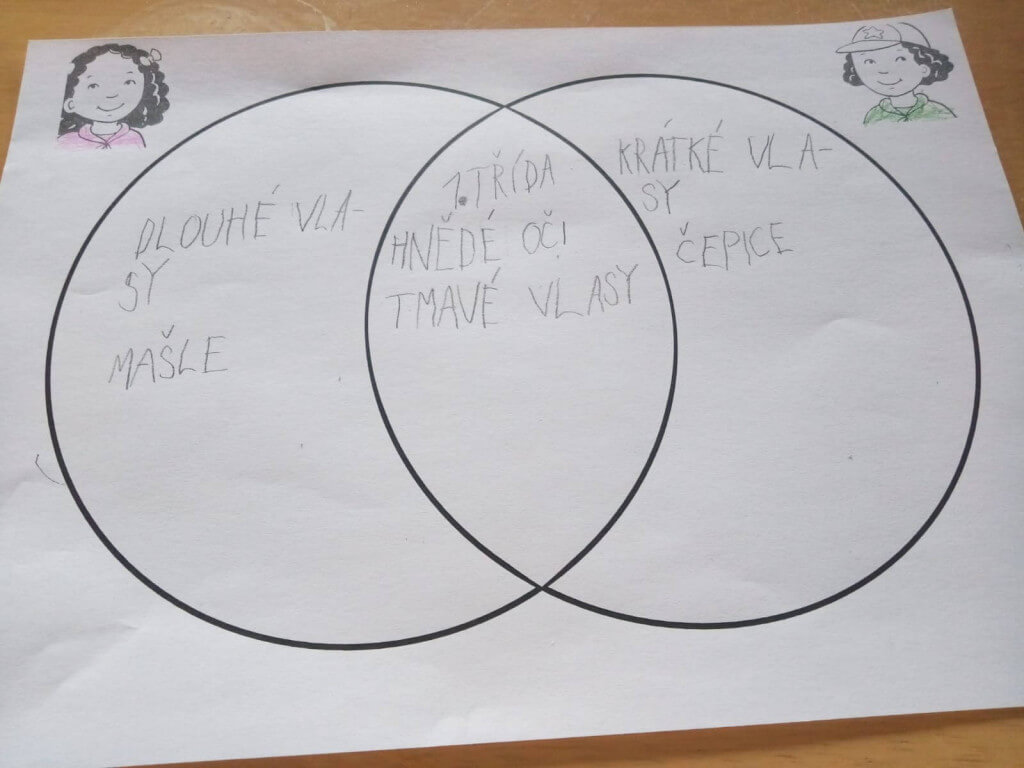 DLOUHÉ VLA-
SY
MAŠLE
1. TŘÍDA
HNĚDÉ OČI
TMAVÉ VLASY
KRÁTKÉ VLA-
SY
ČEPICE